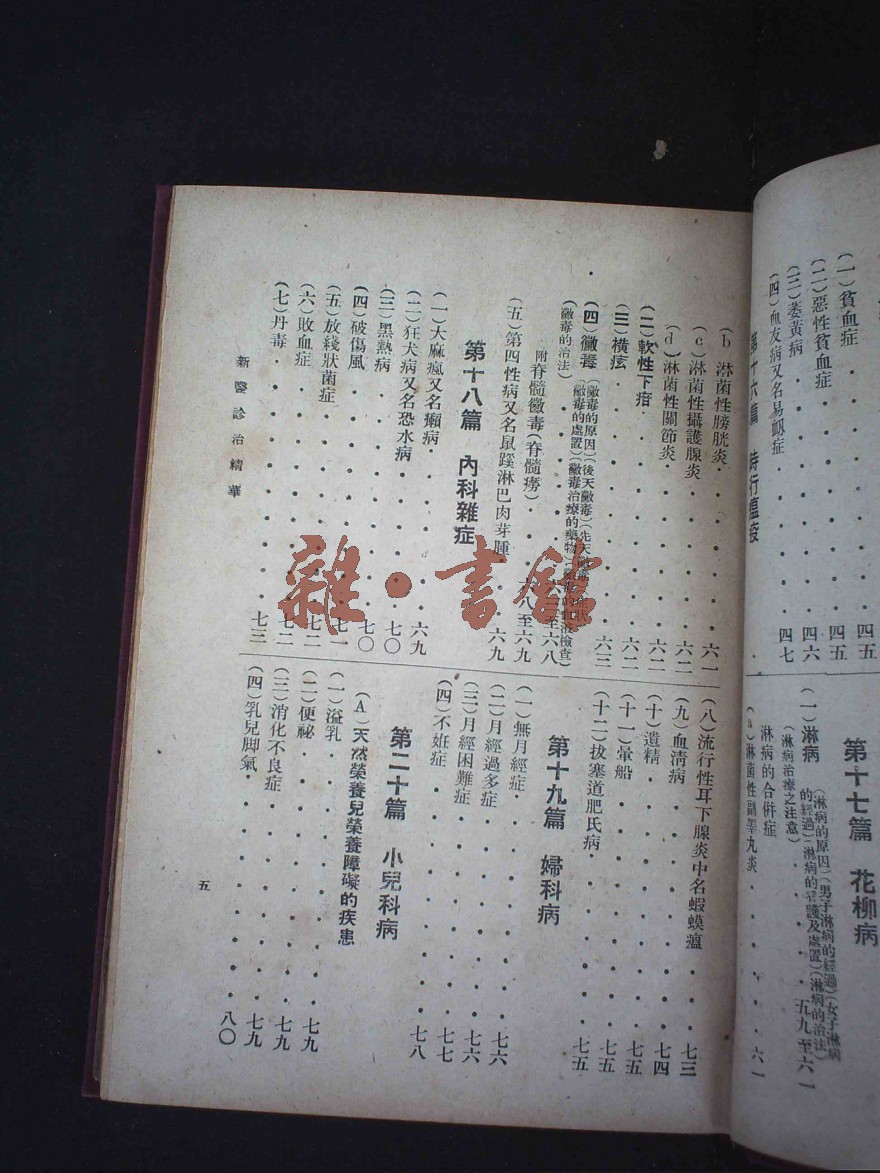 (一)貧血症・・・四五
(二)惡性貧血症・・・四五
(三)萎黃病・・・四六
(四)血友病又名易衂症・・・四七
第十六篇 時行瘟疫
第十七篇 花柳病
(一)淋病(淋病的原因)(男子淋病的經過)(女子淋病的經過)(淋病的看護及處置)(淋病的治法)(淋病治療之注意)・・・五九至六一
淋病的合併症
(a)淋菌性副睾丸炎・・・六一
(b)淋菌性膀胱炎・・・六一
(c)淋菌性攝護腺炎・・・六二
(d)淋菌性關節炎・・・六二
(二)軟性下疳・・・六二
(三)橫痃・・・六三
(四)黴毒(黴毒的原因)(後天黴毒)(先天黴毒)(黴毒的處置)(黴毒治療的藥物)(黴毒的血液檢查)(黴毒的治法)・・・六三至六八
附脊髓黴毒(脊髓癆)・・・六八至六九
(五)第四性病又名鼠蹊淋巴肉芽腫・・・六九
第十八篇 內科雜症
(一)大麻瘋又名癩病・・・六九
(二)狂犬病又名恐水病・・・七〇
(三)黑熱病・・・七〇
(四)破傷風・・・七一
(五)放綫狀菌症・・・七二
(六)敗血症・・・七二
(七)丹毒・・・七三
(八)流行性耳下腺炎中名蝦蟆瘟・・・七三
(九)血清病・・・七四
(十)遺精・・・七五
(十一)暈船・・・七五
(十二)拔塞道肥氏病・・・七五
第十九篇 婦科病
(一)無月經症・・・七六
(二)月經過多症・・・七六
(三)月經困難症・・・七七
(四)不姙症・・・七八
第二十篇 小兒科病
(A)天然榮養兒榮養障礙的疾患
(一)溢乳・・・七九
(二)便祕・・・七九
(三)消化不良症・・・七九
(四)乳兒脚氣・・・八〇
新醫診治精華
五
雜・書館